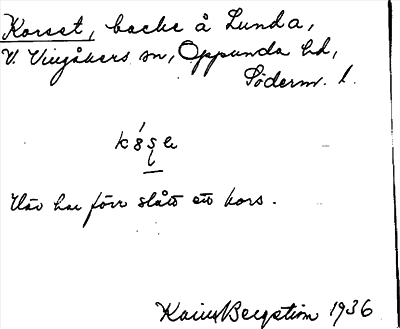 Korset, backe å Lunda,
V. Vingåkers sn, Oppunda hd,
Söderm. l.
Här har förr stått ett kors.
Kaius Bergström 1936